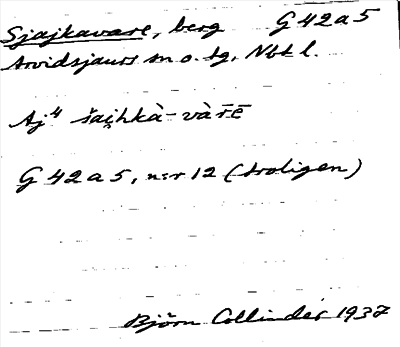 Sjajkavare, berg G 42 a 5
Arvidsjaurs sn o. tg, Nbt l.
Aj⁴ šai̯hkà-vàrē
G 42 a 5, n:r 12 (troligen)
Björn Collinder 1937